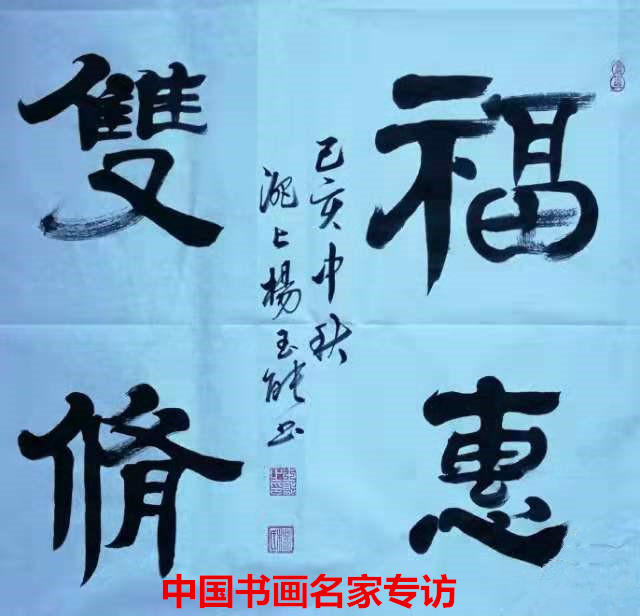 福惠
雙脩
己亥中秋
灔上楊玉能书
中国书画名家专访